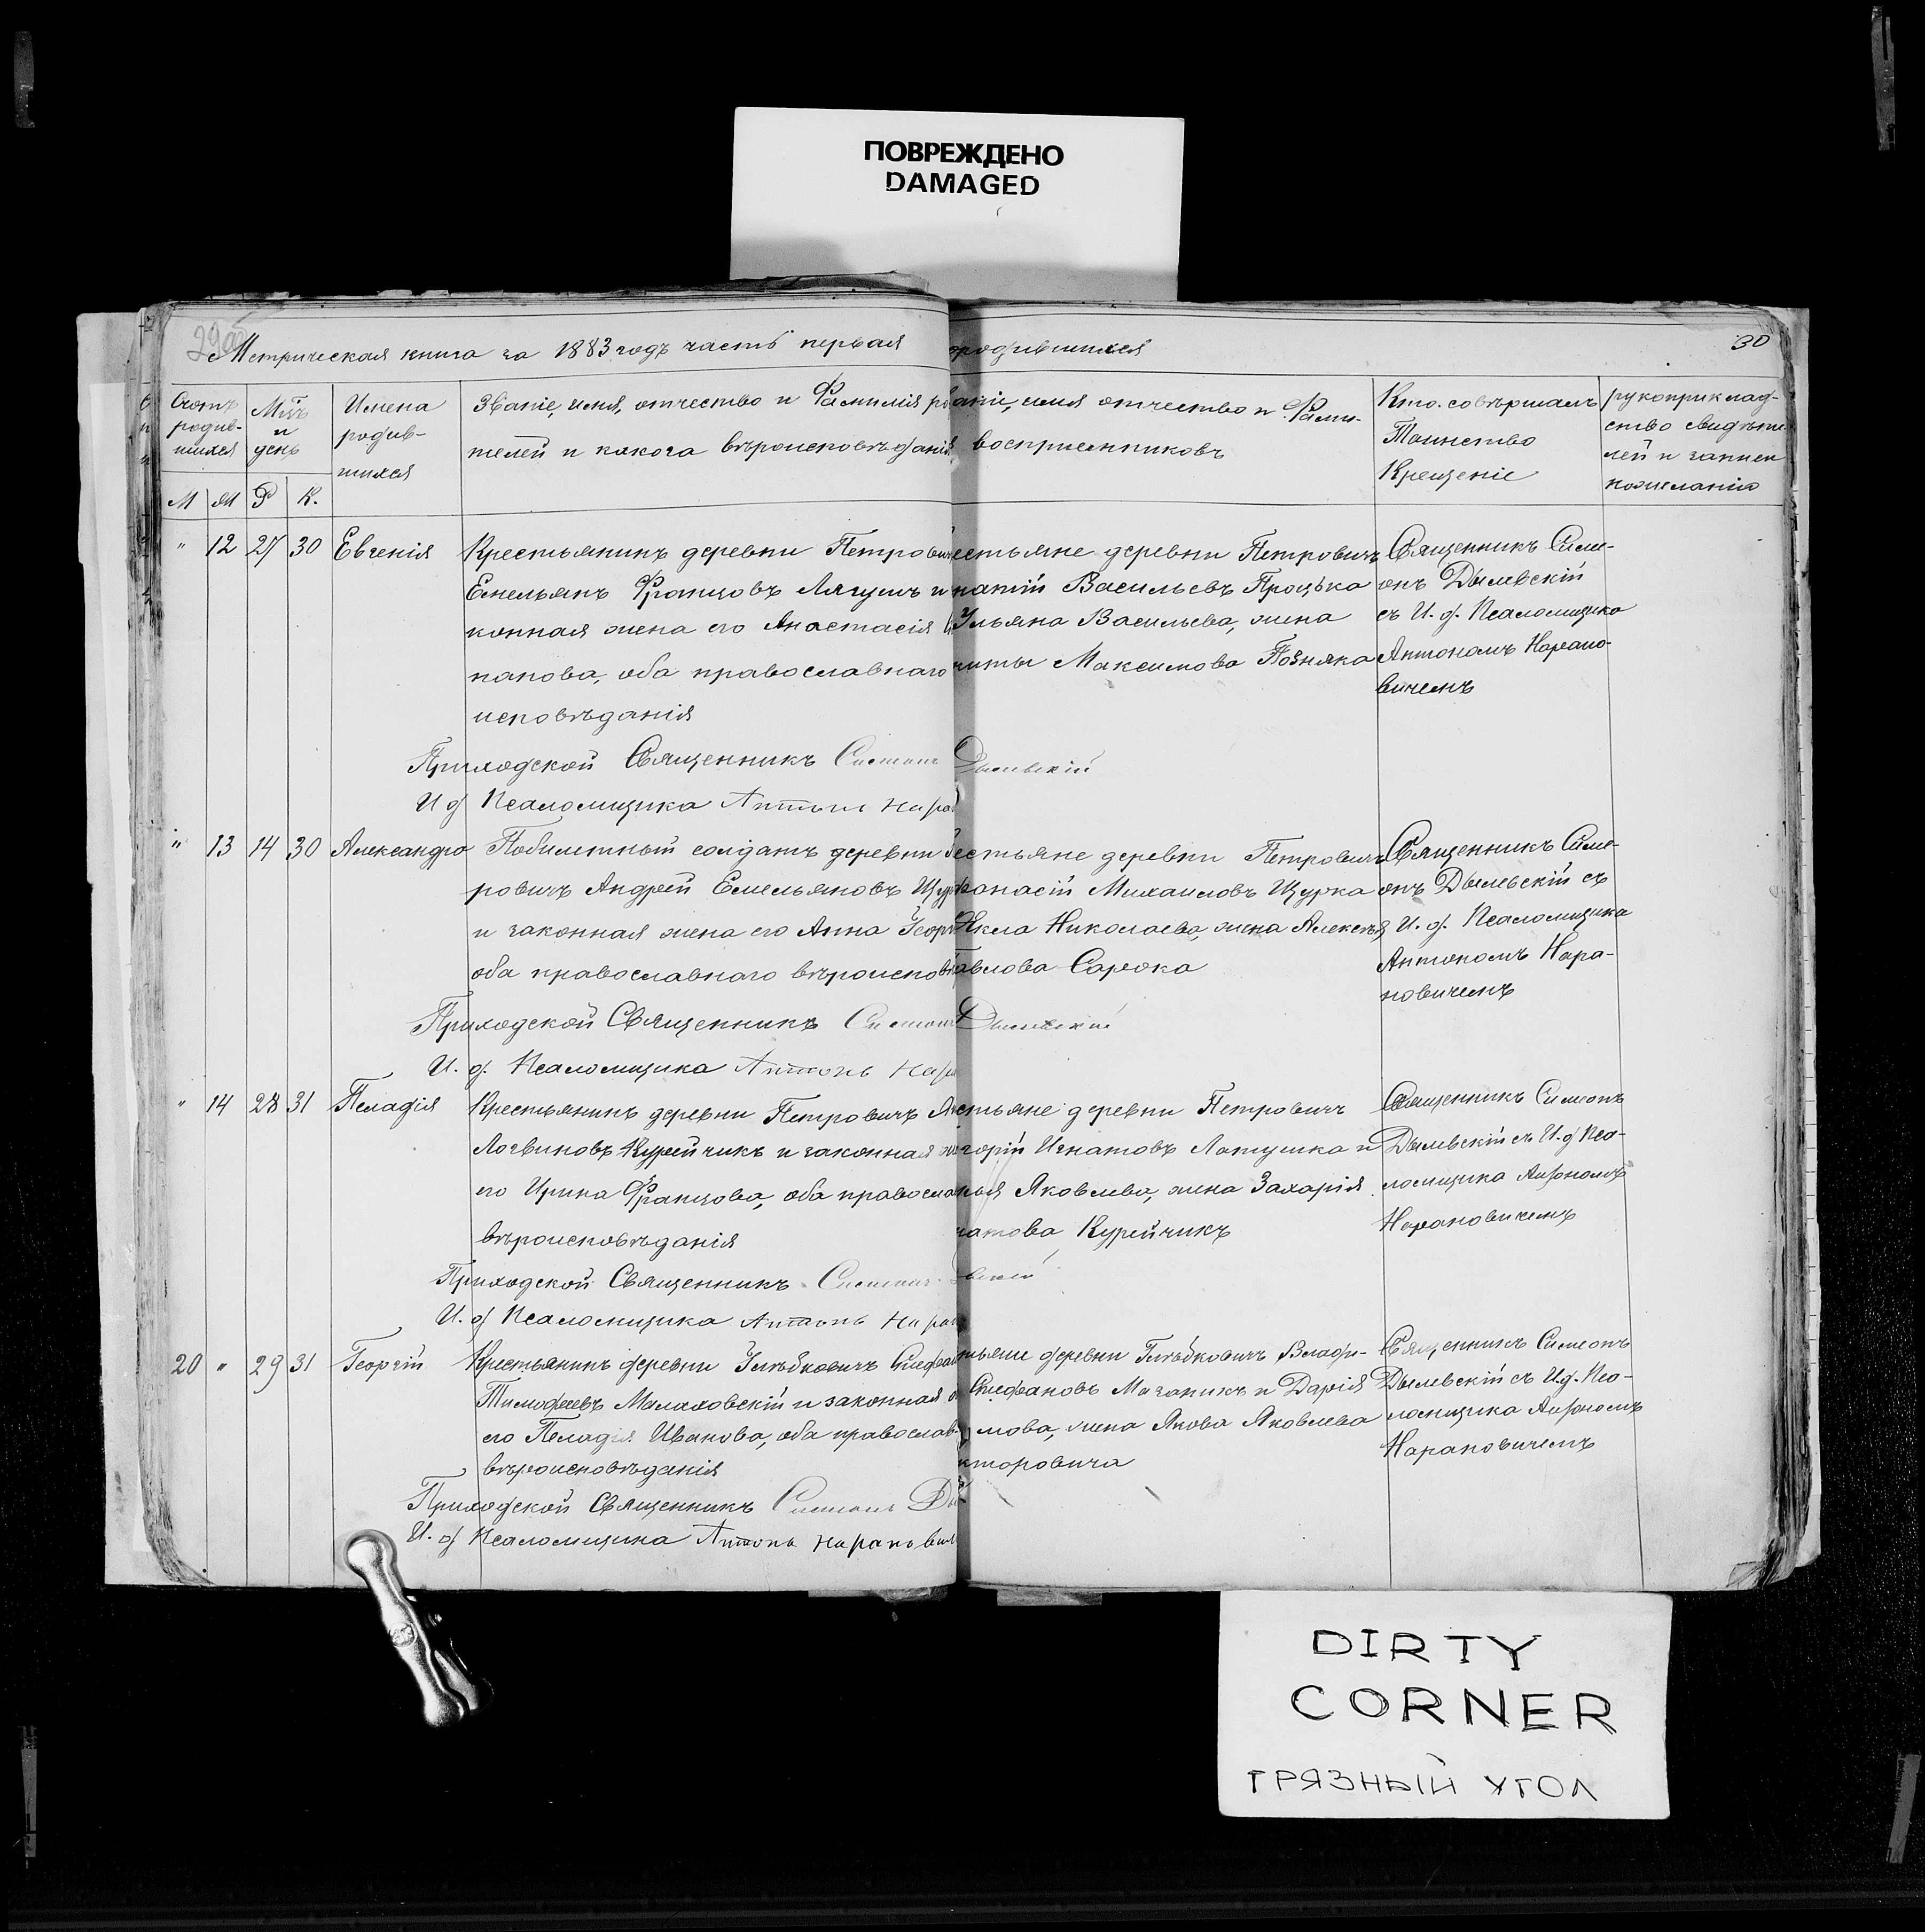 ПОВРЕЖДЕНО
DAMAGED
Метрическая книга за 1883 годъ часть первая
родившихся
30
Счетъ родив-шихся
Мцъ и день
Имена родив-шихся
Званіе, имя, отчество и Фамилія ро
телей и какого вѣроисповѣданія
аніе, имя отчество и Фами-
воспріемниковъ
Кто совершалъ
Таинство
Крещеніе
рукоприклад-
ство свидѣте
лей
М М Р К.
" 12 27 30 Евгенія
Крестьянинъ деревни Петрович
Емельянъ Францовъ Лягушъ и
конная жена его Анастасія
оба православнаго
исповѣданія
естьяне деревни Петровичъ
натій Васильевъ Процька
Ульяна Васильева, жена
киты Максимова Позняка
Священникъ Симе-
онъ Дылевскій
съ И. д. Псаломщика
Антономъ Нарано-
вичемъ
Приходской Священникъ Симеонъ Дылевскій
И д Псаломщика Антонъ Наро
" 13 14 30 Александра
Побилетный солдатъ деревни
ровичъ Андрей Емельяновъ Щур
и законная жена его Анна Георг
оба православнаго вѣроисповѣ
естьяне деревни Петровичъ
анасій Михаиловъ Щурка
екла Николаева, жена Алексѣя
авлова Сарока
Священникъ Симе-
онъ Дылевскій съ
И. д. Псаломщика
Антономъ Нара-
новичемъ
Приходской Священникъ Симеонъ Дылевскій
И. д. Псаломщика Антонъ Нар
" 14 28 31 Пелагія
Крестьянинъ деревни Петровичъ
Логвиновъ Курейчикъ и законная
его Ирина Францова, оба правосла
вѣроисповѣданія
стьяне деревни Петровичъ
горій Игнатовъ Латушка и
Яковлева, жена Захарія
натова Курейчикъ
Священникъ Симеонъ
Дылевскій съ И. д Пса-
ломщика Антономъ
Нарановичемъ
Приходской Священникъ Симеонъ
вскій
И. д Псаломщика Антонъ Наран
20 " 29 31 Георгій
Крестьянинъ деревни Стефан
Тимофеевъ Малаховскій и законная
его Пелагія Иванова, оба православ
вѣроисповѣданія
тьяне деревни Глѣбковичъ Влади-
Стефановъ и Дарія
мова, жена Якова Яковлева
кторовича
Священникъ Симеонъ
Дылевскій съ И. д. Пса-
ломщика Антономъ
Нарановичемъ
Приходской Священникъ Симеонъ Ды
И. д Псаломщика Антонъ Наранович
DIRTY
CORNER
ГРЯЗНЫЙ УГОЛ